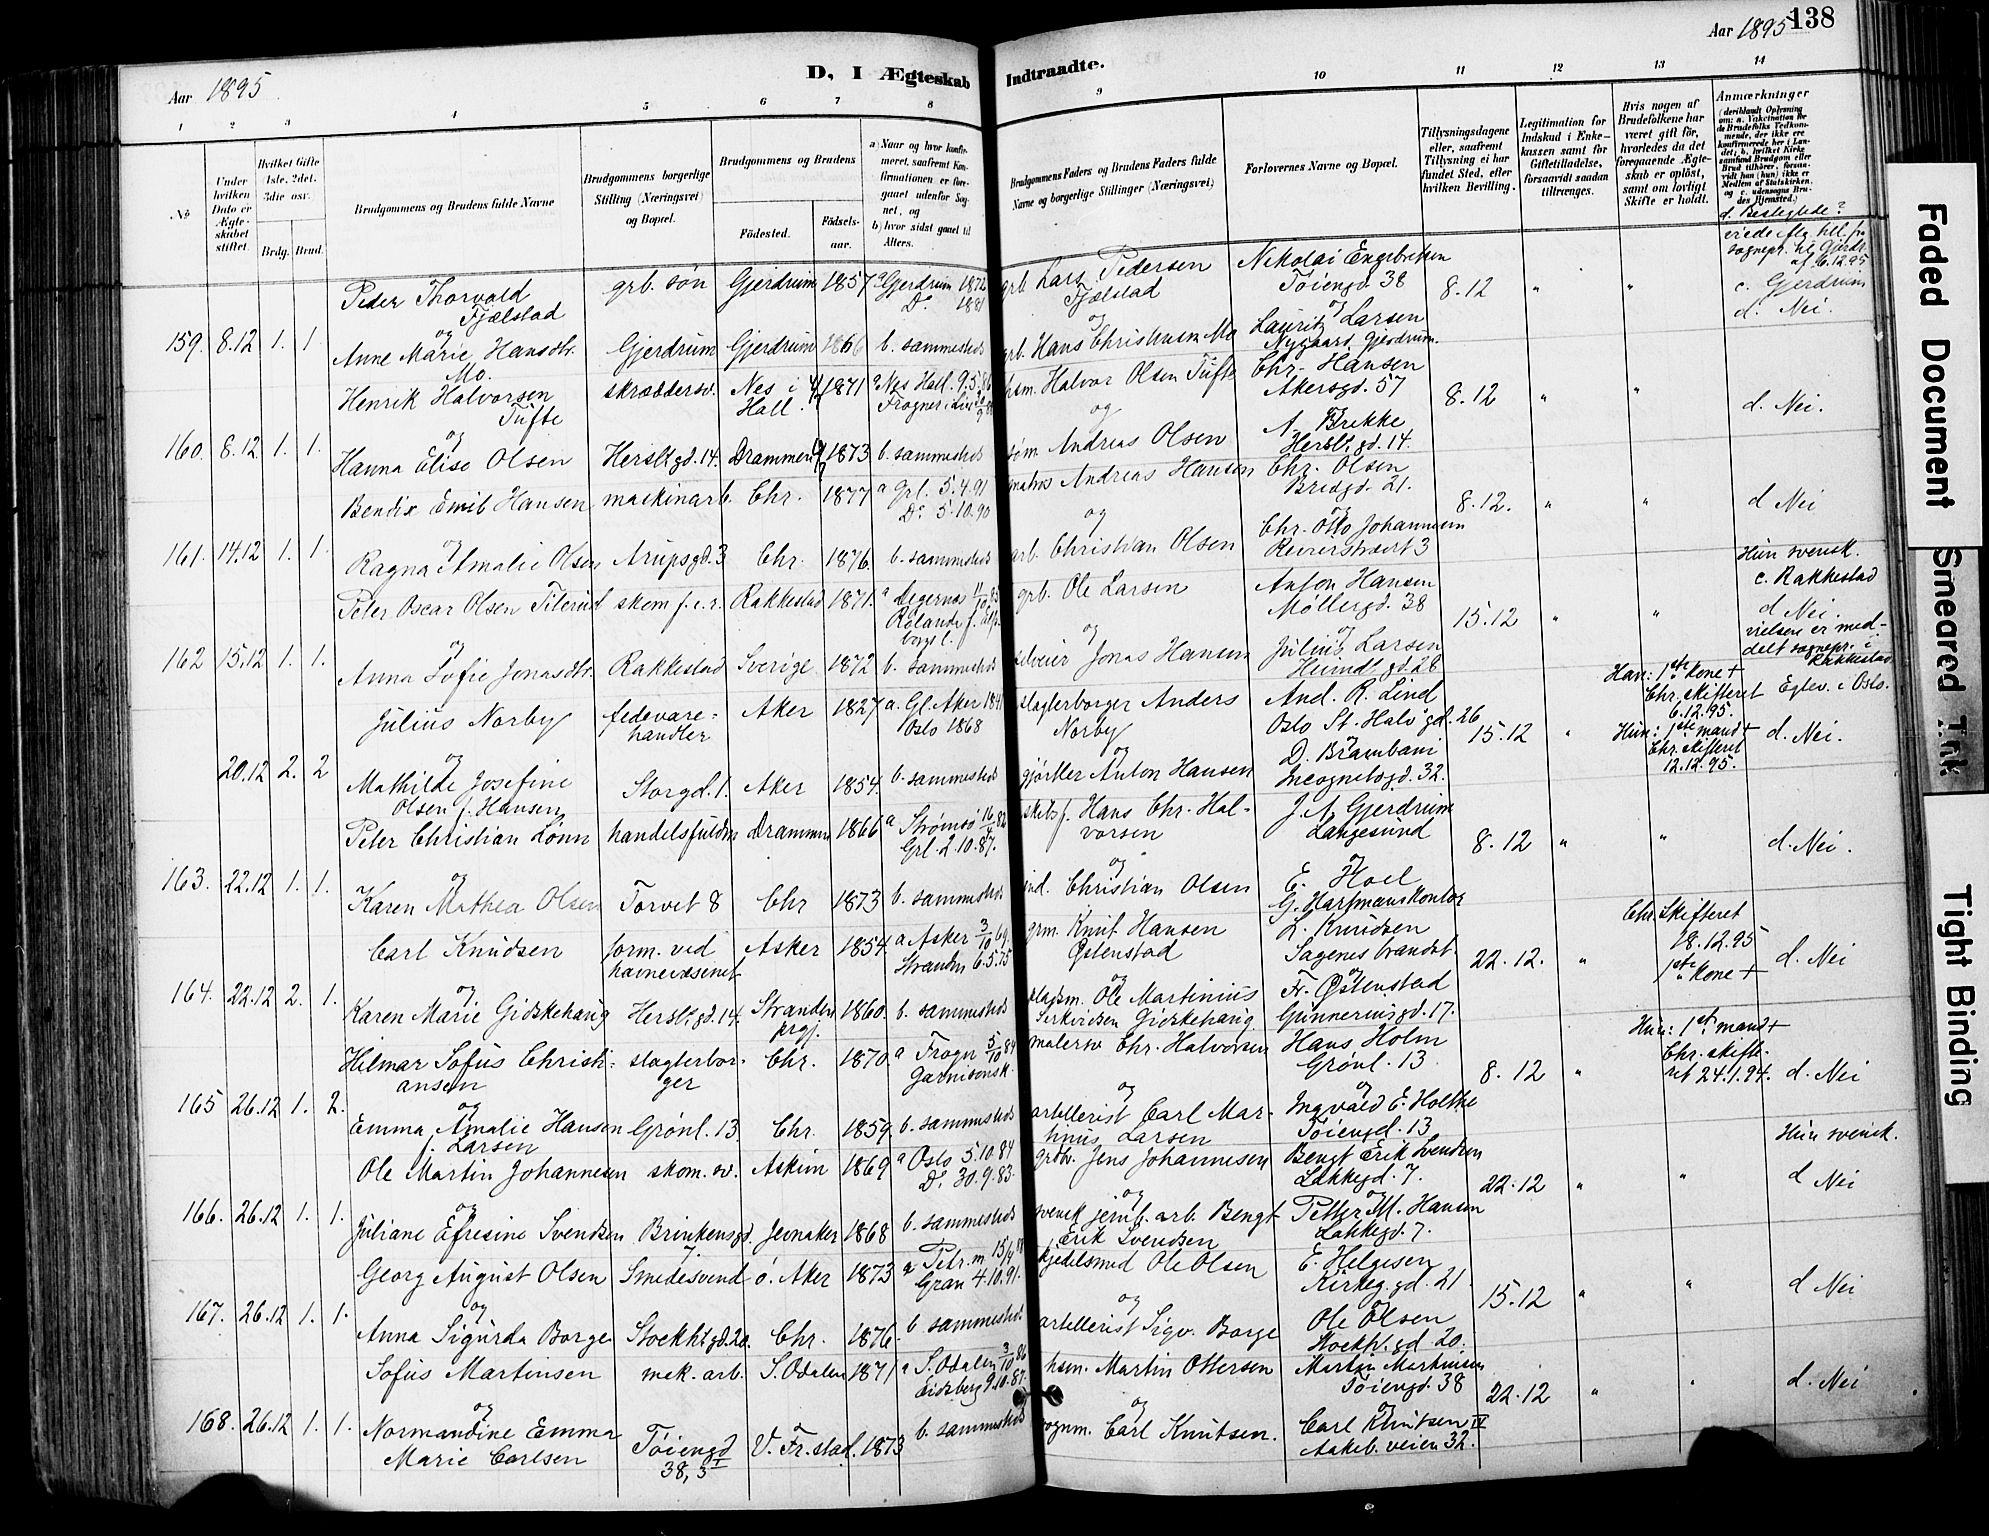 138
Aar 1895
Aar 1895
D, I Ægteskab Indtraadte.
1 2 3 4 5 6 7 8 9 10 11 12 13 14
No
Under hvilken Dato er Ægteskabet stiftet.
Hvilket Gifte 1ste, 2det. 3die osv.
Brdg. Brud.
Brudgommens og Brudens fulde Navne
Brudgommens borgerlige Stilling (Næringsvei) og Bopæl.
Brudgommens og Brudens
Födested.
Födsels-aar.
a) Naar og hvor konfirmeret, saafremt Konfirmationen er foregaaet udenfor Sognet, og b) hvor sidst gaaet til Alters.
Brudgommens Faders og Brudens Faders fulde Navne og borgerlige Stillinger (Næringsvei)
Forlovernes Navne og Bopæl.
Tillysningsdagene eller, saafremt Tillysning ei har fundet Sted, efter hvilken Bevilling.
Legitimation for Indskud i Enkekassen samt for Giftetilladelse, forsaavidt saadan tiltrænges.
Hvis nogen af Brudefolkene har været gift før, hvorledes da det foregaaende Ægteskab er opløst, samt om lovligt Skifte er holdt.
Anmærkninger
d. Beslegtede?
159. 8.12 1. 1
Peder Thorvald Fjælstad
grb. søn Gjerdrum 1857 a Gjerdrum 1872 Do 1881
grb. Lars Pedersen Fjælstad
Nikolai Engebretsen Töiengd. 38
8.12 " "
c. Gjerdrum
d. Nei.
og
Anne Marie Hansdtr. Mo.
Gjerdrum Gjerdrum 1866 b. sammesteds
grb. Hans Christiansen Mo
Lauritz Larsen
Nygaard, Gjerdrum.
160. 8.12 1. 1.
Henrik Halvorsen Tufte
skræddersv. Nes i Hall. 1871 a Nes Hall. 9.5.86
hsm. Halvor Olsen Tufte
Chr. Hansen Akersgd. 57
8.12 " " d. Nei.
og
Hanna Elise Olsen Herslbgd. 14. Drammen 1873 b. sammesteds
Andreas Olsen
A. Brekke Herslbgd. 14.
161. 14.12 1. 1.
Bendix Emil Hansen maskinarb. Chr. 1877 a Grl. 5.4.91 Do 5.10.90
matros Andreas Hansen
Chr. Olsen Bredgd. 21.
8.12. " " d Nei
og
Ragna Amalie Olsen Arupsgd. 3 Chr. 1876. b. sammesteds
arb. Christian Olsen
Chr. Otto Johannesen
162 15.12 1. 1.
Peter Oscar Olsen skom. f.e.r. Rakkestad 1871. a Degernæs
grb. Ole Larsen
Anton Hansen Møllergd. 38
15.12 " "
Hun svensk.
c. Rakkestad
d Nei.
vielsen er meddelt sognepr. i Rakkestad
og
Anna Sofie Jonasdtr. Rakkestad Sverige 1872 b. sammesteds
Jonas Hansen
Julius Larsen
20.12 2. 2
Julius Norby fedevarehandler Aker 1827 a. Gl. Aker Oslo 1868
slagterborger Anders Norby
And. R. Lind Oslo St. Halvgd. 26
15.12 "
Han: 1ste kone + Chr. skifteret 6.12.95.
Hun: 1ste mand + Chr. skifteret 12.12.95.
Egtev. i Oslo.
d. Nei.
og
Mathilde Josefine Olsen f. Hansen
Storgd. 1. Aker 1854. b. sammesteds
gjørtler Anton Hansen
D. Brambani Incognitogd. 32.
163. 22.12 1. 1.
Peter Christian Lønn handelsfuldm. Drammen 1866 a Strømsø Grl. 2.10.87.
Hans Chr. Halvorsen
J. A. Gjerdrum Langesund
8.12 " " d. Nei.
og
Karen Mathea Olsen Torvet 8 Chr 1873 b. sammesteds
Christian Olsen
E. Hoel G. Hartmans kontor
164. 22.12 2. 1.
Carl Knudsen form. ved havnevæsenet Asker 1854. a Asker 3/10 69. Stranden 6.5.75
grm. Knut Hansen Østenstad
L. Knudsen Sagenes brandst.
22.12. "
Chr. Skifteret 18.12.95
1ste kone +
d. Nei
og
Karen Marie Gidskehaug Herslbgd. 14. Stranden prgj. 1860. b. sammesteds
Ole Martinius Gidskehaug
Fr. Østenstad Gunnerusgd. 17.
165 26.12 1. 2.
Hilmar Sofus Christiansen slagterborger Chr. 1870. a Frogn 5/10 84 Garnisonsk.
malersv. Chr. Halvorsen
Hans Holm Grønl. 13
8.12 "
Hun: 1ste mand + Chr. skifteret 24.1.94.
d. Nei
og
Emma Amalie Hansen f. Larsen Grønl. 13. Chr. 1859. b. sammesteds
artellerist Carl Martinus Larsen
Ingvald E. Holthe Töiengd. 13
166. 26.12 1. 1.
Ole Martin Johannesen skom. sv. Askim 1869 a Oslo 5.10.84 Do. 30.9.83.
Jens Johannesen
Bengt Erik Svendsen Lakkegd. 7.
22.12 " "
Hun svensk.
d Nei
og
Juliane Efresine Svendsen Brinkensgd. Jevnaker 1868 b. sammesteds
svensk jernb. arb. Bengt Erik Svendsen
Petter M. Hansen Lakkegd. 7.
167. 26.12 1. 1.
Georg August Olsen Smedesvend ö. Aker 1873 a Petr. m. Gran 4.10.91.
kjedelsmed Ole Olsen
E. Helgesen Kirkeg.gd. 21
15.12 " " d Nei
og
Anna Sigurda Borge Stockhl.gd. 20. Chr. 1876. b sammesteds
artellerist Sigv. Borge
Ole Olsen Stockhl.gd 20.
168. 26.12 1. 1.
Sofus Martinsen mek. arb. S. Odalen 1871 a S. Odalen 3/10 86 Eidsberg 9.10.87.
hsm. Martin Ottersen
Martin Martinsen Töiengd. 38
22.12 " " d. Nei
og
Normandine Emma Marie Carlsen Töiengd 38, 3 V. Fr.stad. 1873 b. sammesteds
vognm. Carl Knutsen.
Carl Knutsen Aakeb. veien 32.
Faded Document
Smeared Ink
Tight Binding